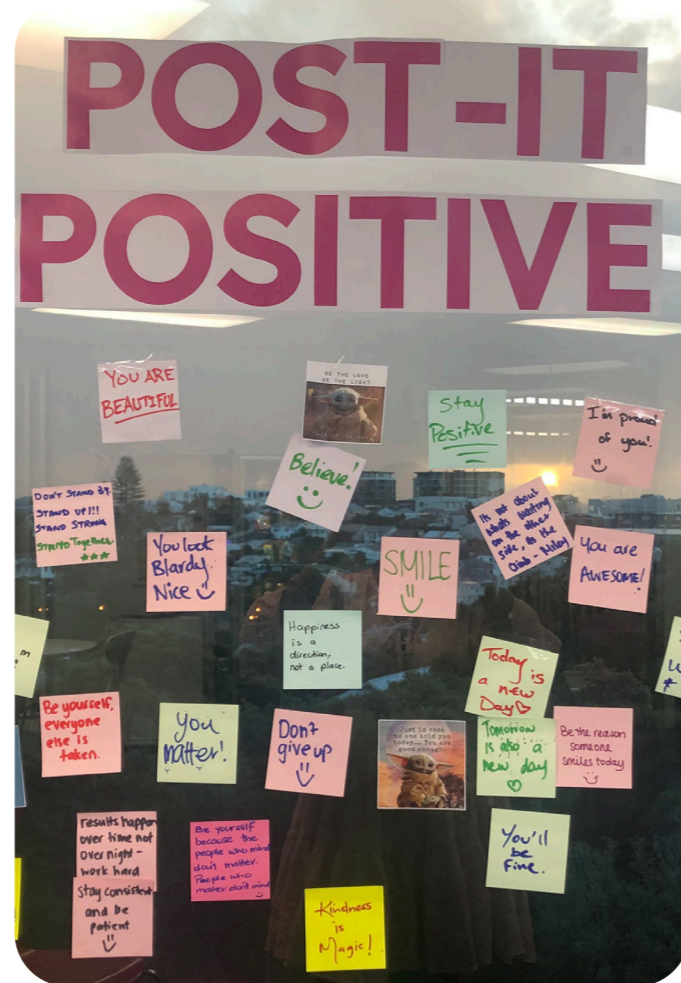 POST-IT
POSITIVE
YOU ARE
BEAUTIFUL
BE THE LOVE
BE THE LIGHT
Stay
Positive
I'm proud
of you!
Believe!
DON'T STAND BY
STAND UP!!!
STAND STRONG
STAND Together
It's not about
whats waiting
on the other
side, its the
climb - Miley
You look
Blardy
Nice
SMILE
You are
AWESOME!
Happiness
is a
direction,
not a place.
Today is
a new
Day
Be yourself,
everyone
else is
taken.
You
matter!
Don't
give up
Just in case
no one told you
today... You are
good enough.
Tomorrow
is also a
new day
Be the reason
someone
smiles today
results happen
over time not
over night -
work hard
Stay consistent
and be
patient
Be yourself
because the
people who mind
don't matter.
People who
matter don't mind
You'll
be
fine.
Kindness
is
Magic!